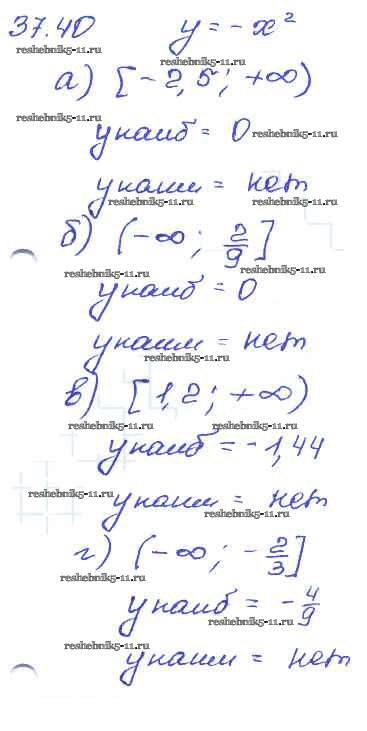 37.40 y = - x²
reshebnik5-11.ru
reshebnik5-11.ru
а) [-2,5; +∞)
reshebnik5-11.ru
yнаиб = 0 reshebnik5-11.ru
yнаим = нет
reshebnik5-11.ru reshebnik5-11.ru
б) (-∞; 2/9]
reshebnik5-11.ru reshebnik5-11.ru
yнаиб = 0
yнаим = нет
reshebnik5-11.ru
в) [1,2; +∞)
reshebnik5-11.ru reshebnik5-11.ru
yнаиб = -1,44
reshebnik5-11.ru
yнаим = нет
reshebnik5-11.ru
г) (-∞; -2/3]
reshebnik5-11.ru
yнаиб = -4/9
reshebnik5-11.ru
reshebnik5-11.ru
yнаим = нет